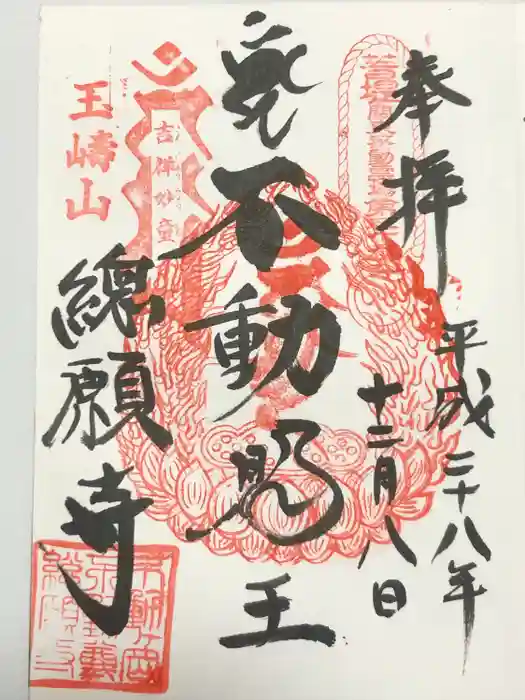 奉拝
平成二十八年
十二月八日
不動明王
吉祥妙童
玉嶹山
總願寺